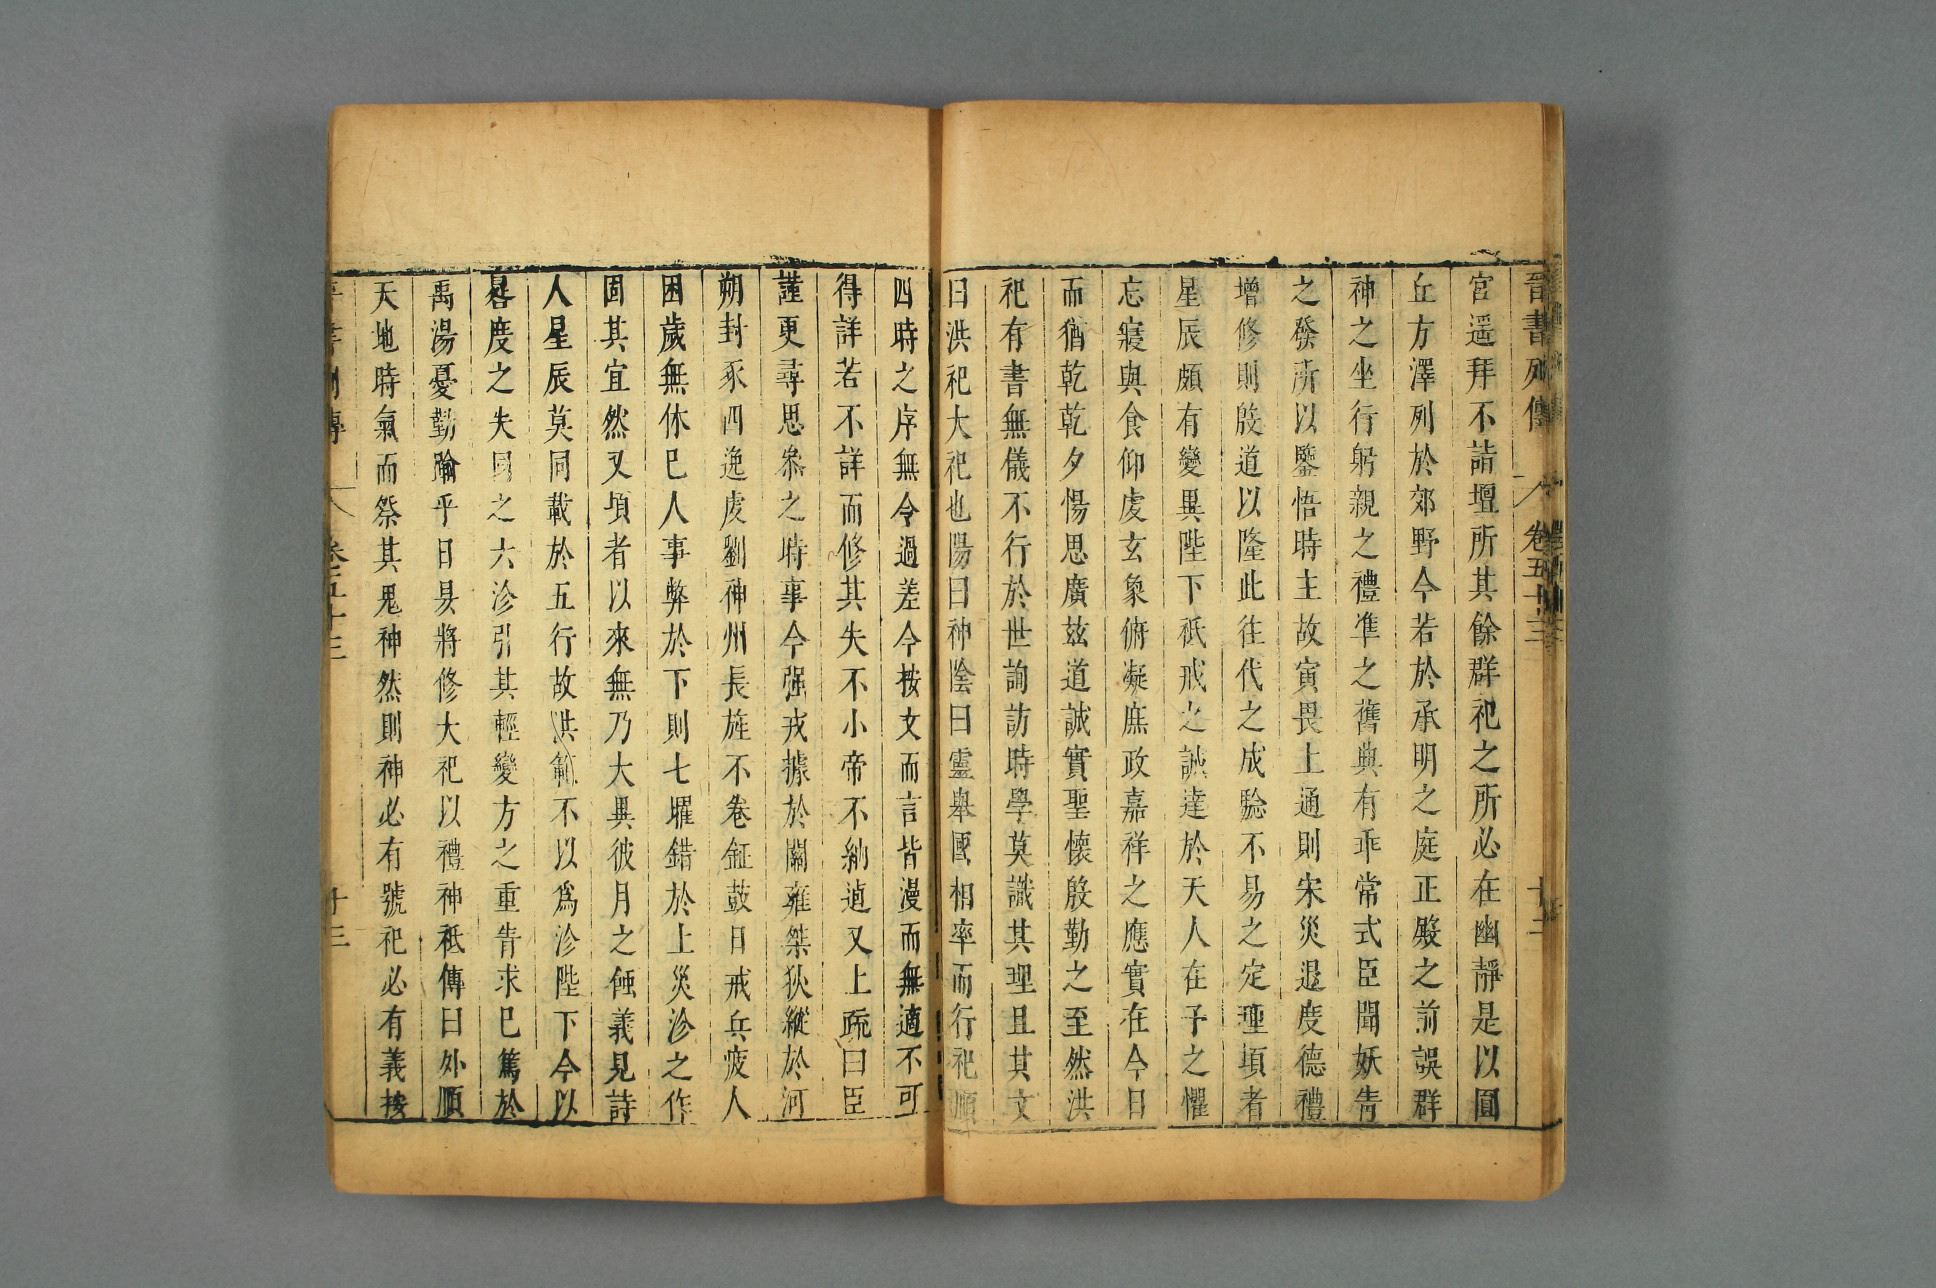 晉書列傳 卷五十三 十二
宮遥拜不詣壇所其餘群祀之所必在幽靜是以圓
丘方澤列於郊野今若於承明之庭正殿之前設群
神之坐行躬親之禮準之舊典有乖常式臣聞妖眚
之發所以鑒悟時主故寅畏上通則宋災退度德禮
增修則殷道以隆此往代之成驗不易之定理頃者
星辰頗有變異陛下祗戒之誠達於天人在予之懼
忘寢與食仰虔玄象俯凝庶政嘉祥之應實在今日
而猶乾乾夕惕思廣玆道誠實聖懷殷勤之至然洪
祀有書無儀不行於世詢訪時學莫識其理且其文
曰洪祀大祀也陽曰神陰曰靈舉國相率而行祀順
四時之序無令過差今按文而言皆漫而無適不可
得詳若不詳而修其失不小帝不納逌又上疏曰臣
謹更尋思叅之時事今强戎據於關雍桀狄縱於河
朔封豕四逸虔劉神州長旌不卷鉦鼓日戒兵疲人
困歲無休已人事弊於下則七曜錯於上災沴之作
固其宜然又頃者以來無乃大異彼月之蝕義見詩
人星辰莫同載於五行故洪範不以爲沴陛下今以
晷度之失同之六沴引其輕變方之重眚求已篤於
禹湯憂勤踰乎日昃將修大祀以禮神祗傳曰外順
天地時氣而祭其鬼神然則神必有號祀必有義按
晉書列傳 卷五十三 十三